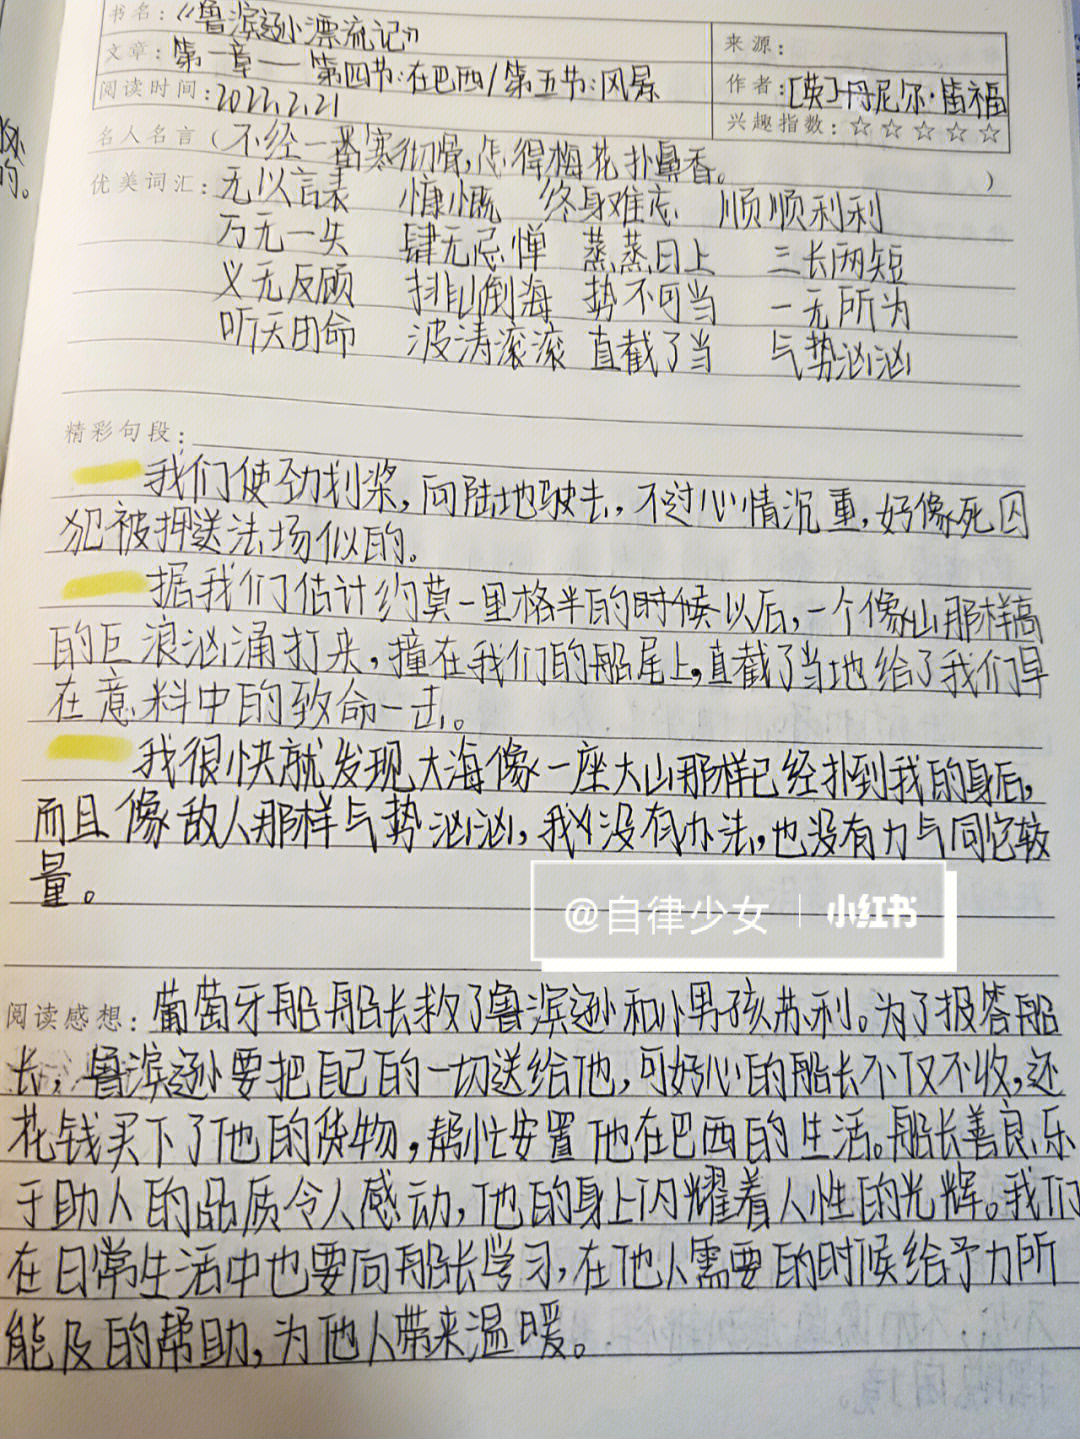 书名：《鲁滨逊漂流记》
来源：
文章：第一章——第四节：在巴西/第五节：风暴
作者：[英]丹尼尔·笛福
阅读时间：2022.2.21
兴趣指数：☆☆☆☆☆
名人名言（不经一番寒彻骨，怎得梅花扑鼻香。）
优美词汇：无以言表 慷慨 终身难忘 顺顺利利
万无一失 肆无忌惮 蒸蒸日上 三长两短
义无反顾 排山倒海 势不可当 一无所为
听天由命 波涛滚滚 直截了当 气势汹汹
精彩句段：
我们使劲划桨，向陆地驶去，不过心情沉重，好像死囚
犯被押送法场似的。
据我们估计约莫一里格半的时候以后，一个像山那样高
的巨浪汹涌打来，撞在我们的船尾上，直截了当地给了我们早
在意料中的致命一击。
我很快就发现大海像一座大山那样已经扑到我的身后，
而且像敌人那样气势汹汹，我没有办法，也没有力气同它较
量。
@自律少女 | 小红书
阅读感想：葡萄牙船船长救了鲁滨逊和小男孩苏利。为了报答船
长，鲁滨逊要把自己的一切送给他，可好心的船长不仅不收，还
花钱买下了他的货物，帮忙安置他在巴西的生活。船长善良、乐
于助人的品质令人感动，他的身上闪耀着人性的光辉。我们
在日常生活中也要向船长学习，在他人需要的时候给予力所
能及的帮助，为他人带来温暖。